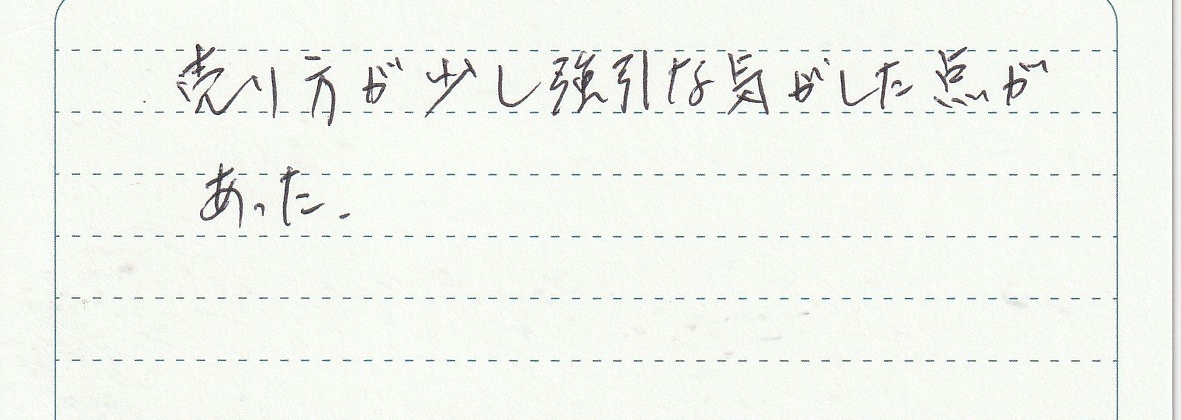 売り方が少し強引な気がした点が
あった.